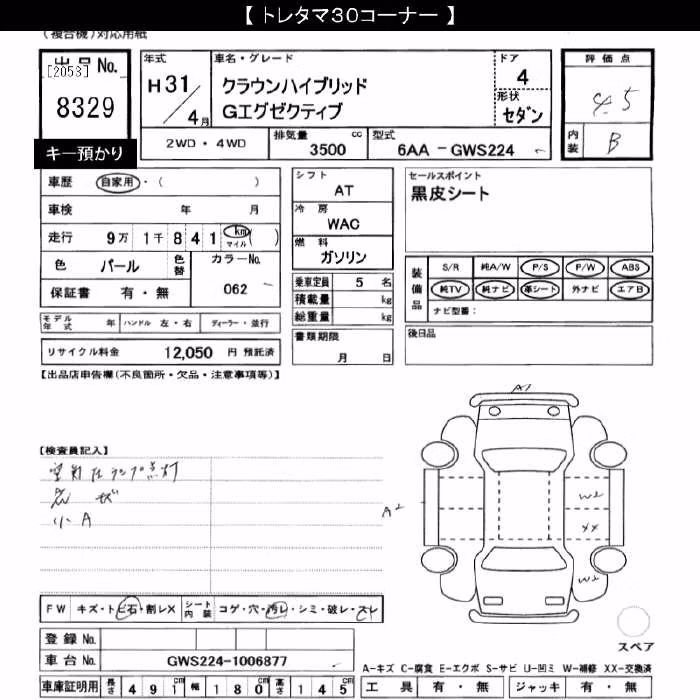 【 トレタマ30コーナー 】
(複合機)対応用紙
出品 No.
[2053]
8329
キー預かり
年式
H 31/4月
車名・グレード
クラウンハイブリッド
Gエグゼクティブ
ドア
4
形状
セダン
2WD ・ 4WD
排気量 cc
3500
型式
6AA -GWS224
評価点
4.5
内装
B
車歴 自家用・( )
車検 年 月
走行 9万 1千 8 4 1 km マイル ( )
色 パール 色替
カラーNo.
062
保証書 有・無
モデル年式 年 ハンドル 左・右 ディーラー・並行
リサイクル料金 12,050 円 預託済
シフト
AT
冷房
WAC
燃料
ガソリン
乗車定員 5 名
積載量 kg
総重量 kg
書類期限
月 日
セールスポイント
黒皮シート
装備品
S/R 純A/W P/S P/W ABS
純TV 純ナビ 革シート 外ナビ エアB
ナビ型番:
後日品
【出品店申告欄(不良箇所・欠品・注意事項等)】
【検査員記入】
空気圧ランプ点灯
小A
A1
A2
W2
XX
W2
FW キズ・トビ石・割レX シート内装 コゲ・穴・汚レ・シミ・破レ・スレ
登録 No.
車台 No. GWS224-1006877
車庫証明用 長さ 491 cm 幅 180 cm 高さ 145 cm
スペア
A-キズ C-腐食 E-エクボ S-サビ U-凹ミ W-補修 XX-交換済
工具 有・無 ジャッキ 有・無